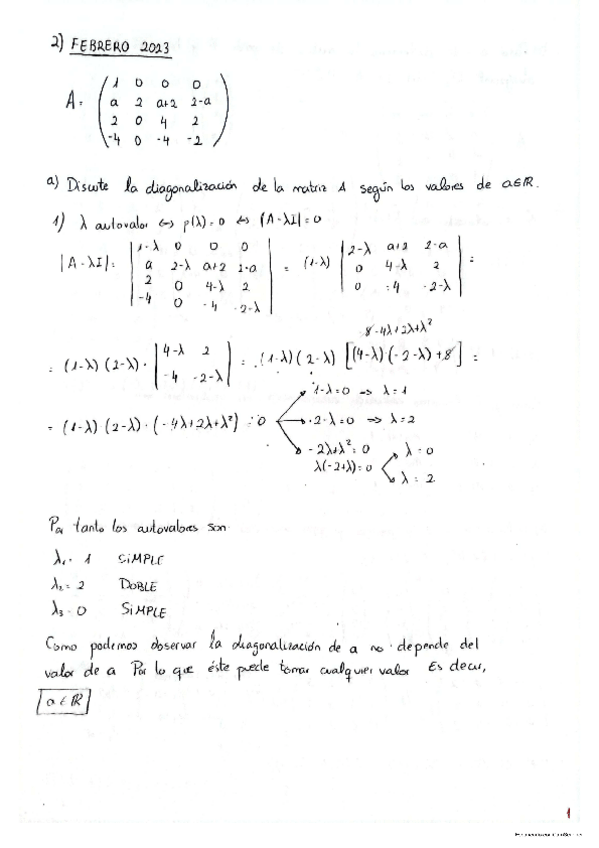 2) FEBRERO 2023
A = ( 1 0 0 0
a 2 a+2 2-a
2 0 4 2
-4 0 -4 -2 )
a) Discute la diagonalización de la matriz A según los valores de a∈ℝ.
1) λ autovalor ⇔ p(λ)=0 ⇔ |A-λI|=0
|A-λI| = | 1-λ 0 0 0
a 2-λ a+2 2-a
2 0 4-λ 2
-4 0 -4 -2-λ | = (1-λ) | 2-λ a+2 2-a
0 4-λ 2
0 -4 -2-λ | =
-8-4λ+2λ+λ²
= (1-λ)(2-λ)· | 4-λ 2
-4 -2-λ | = (1-λ)(2-λ) [(4-λ)(-2-λ)+8] =
= (1-λ)(2-λ)·(-4λ+2λ+λ²) = 0
1-λ=0 ⇒ λ=1
2-λ=0 ⇒ λ=2
-2λ+λ²=0
λ(-2+λ)=0
λ=0
λ=2
Por tanto los autovalores son
λ₁ = 1 SIMPLE
λ₂ = 2 DOBLE
λ₃ = 0 SIMPLE
Como podemos observar la diagonalización de a no depende del
valor de a Por lo que éste puede tomar cualquier valor Es decir,
a∈ℝ
1